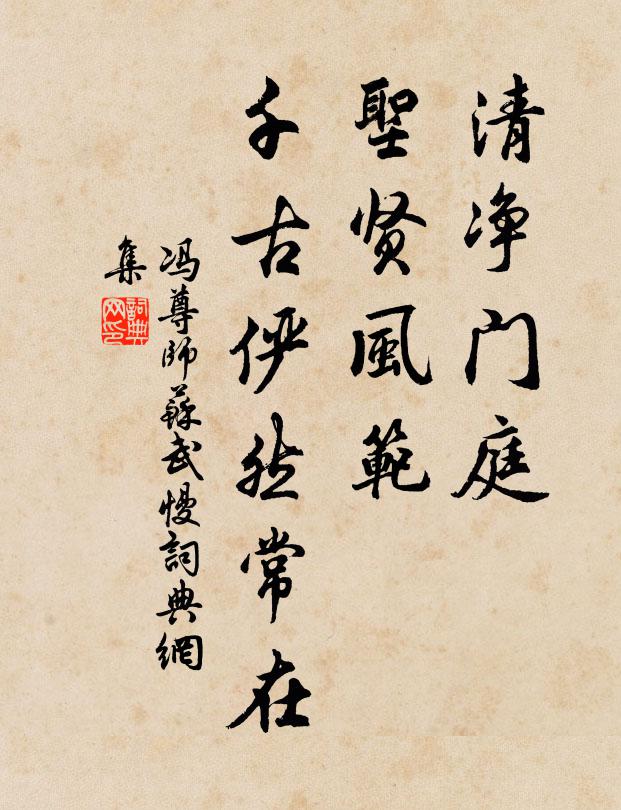 清净门庭
聖贤風範
千古俨然常在
冯尊師蘇武慢詞典網
集
詞典
网印